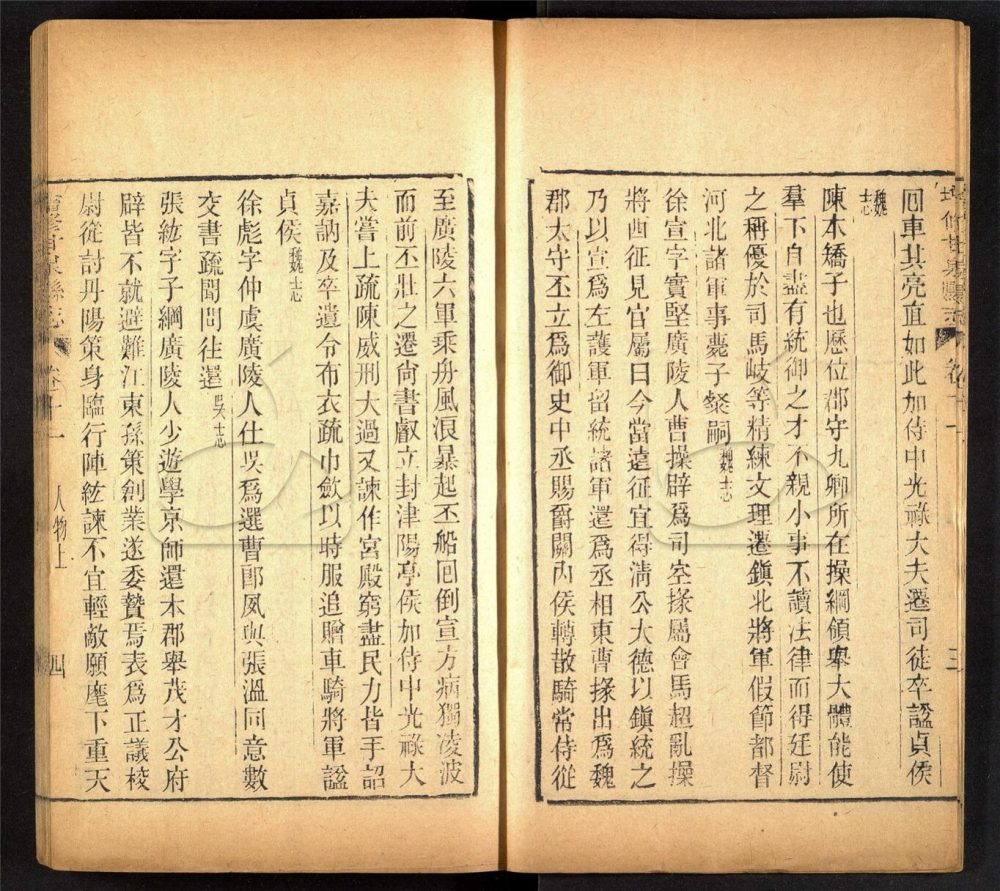 增修甘泉縣志 卷十一 三
回車其亮直如此加侍中光祿大夫遷司徒卒諡貞侯
魏志
陳本矯子也歷位郡守九卿所在操綱領舉大體能使
羣下自盡有統御之才不親小事不讀法律而得廷尉
之稱優於司馬岐等精練文理遷鎮北將軍假節都督
河北諸軍事薨子粲嗣魏志
徐宣字寶堅廣陵人曹操辟爲司空掾屬會馬超亂操
將西征見官屬曰今當遠征宜得清公大德以鎮統之
乃以宣爲左護軍留統諸軍還爲丞相東曹掾出爲魏
郡太守丕立爲御史中丞賜爵關內侯轉散騎常侍從
至廣陵六軍乘舟風浪暴起丕船囘倒宣方病獨凌波
而前丕壯之遷尙書叡立封津陽亭侯加侍中光祿大
夫嘗上疏陳威刑大過又諫作宮殿窮盡民力皆手詔
嘉訥及卒遺令布衣疏巾斂以時服追贈車騎將軍諡
貞侯魏志
徐彪字仲虞廣陵人仕吳爲選曹郎夙與張溫同意數
交書疏聞問往還吳志
張紘字子綱廣陵人少遊學京師還本郡舉茂才公府
辟皆不就避難江東孫策創業遂委贄焉表爲正議校
尉從討丹陽策身臨行陣紘諫不宜輕敵願麾下重天
增修甘泉縣志 卷十一 人物上 四